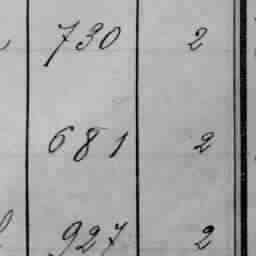 730 2
681 2
927 2